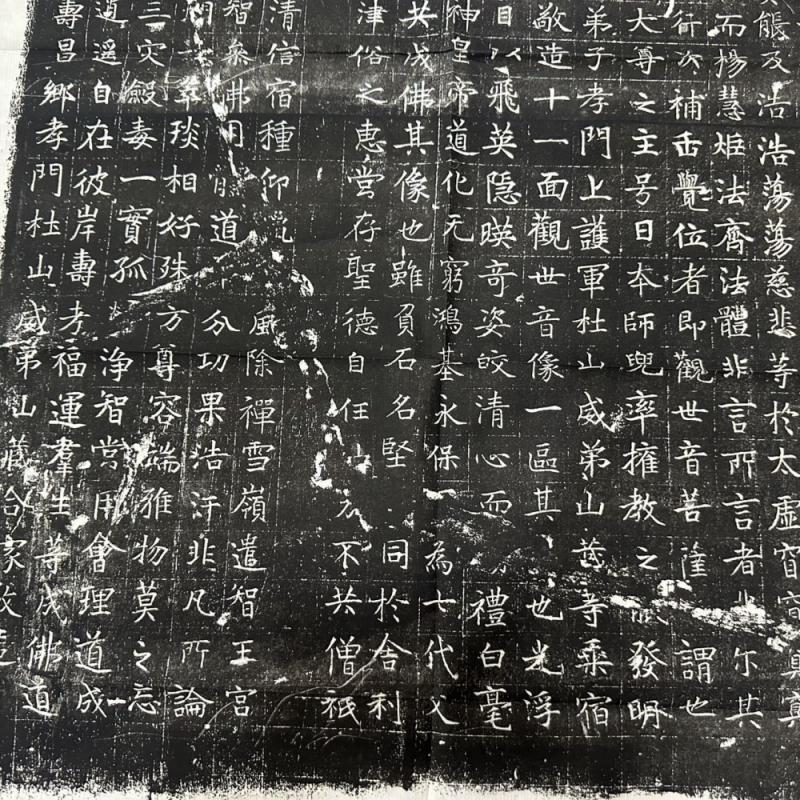 態及浩浩蕩蕩慈悲等於太虛
而楊慧炬法齊法體非言所言者尔其
行次補覺位者即觀世音菩薩謂也
大尊之主号日本師兜率擁教之發明
弟子孝門上護軍杜山威弟山等乘宿
敬造十一面觀世音像一區其也光浮
目以飛英隱暎奇姿皎清心而禮白毫
神皇帝道化无窮鴻基永保為七代父
共成佛其像也雖負石名堅同於舍利
津俗之惠嘗存聖德自任不共僧祇
清信宿種仰風除禪雪嶺遣智王宮
智乘佛用道分功果浩汗非凡所論
琰相好殊方尊容端雅物莫之忘
三灾斂毒一實孤淨智常用會理道成
遥自在彼岸壽考福運羣生等成佛道
壽昌鄉孝門杜山威弟山藏合家敬造